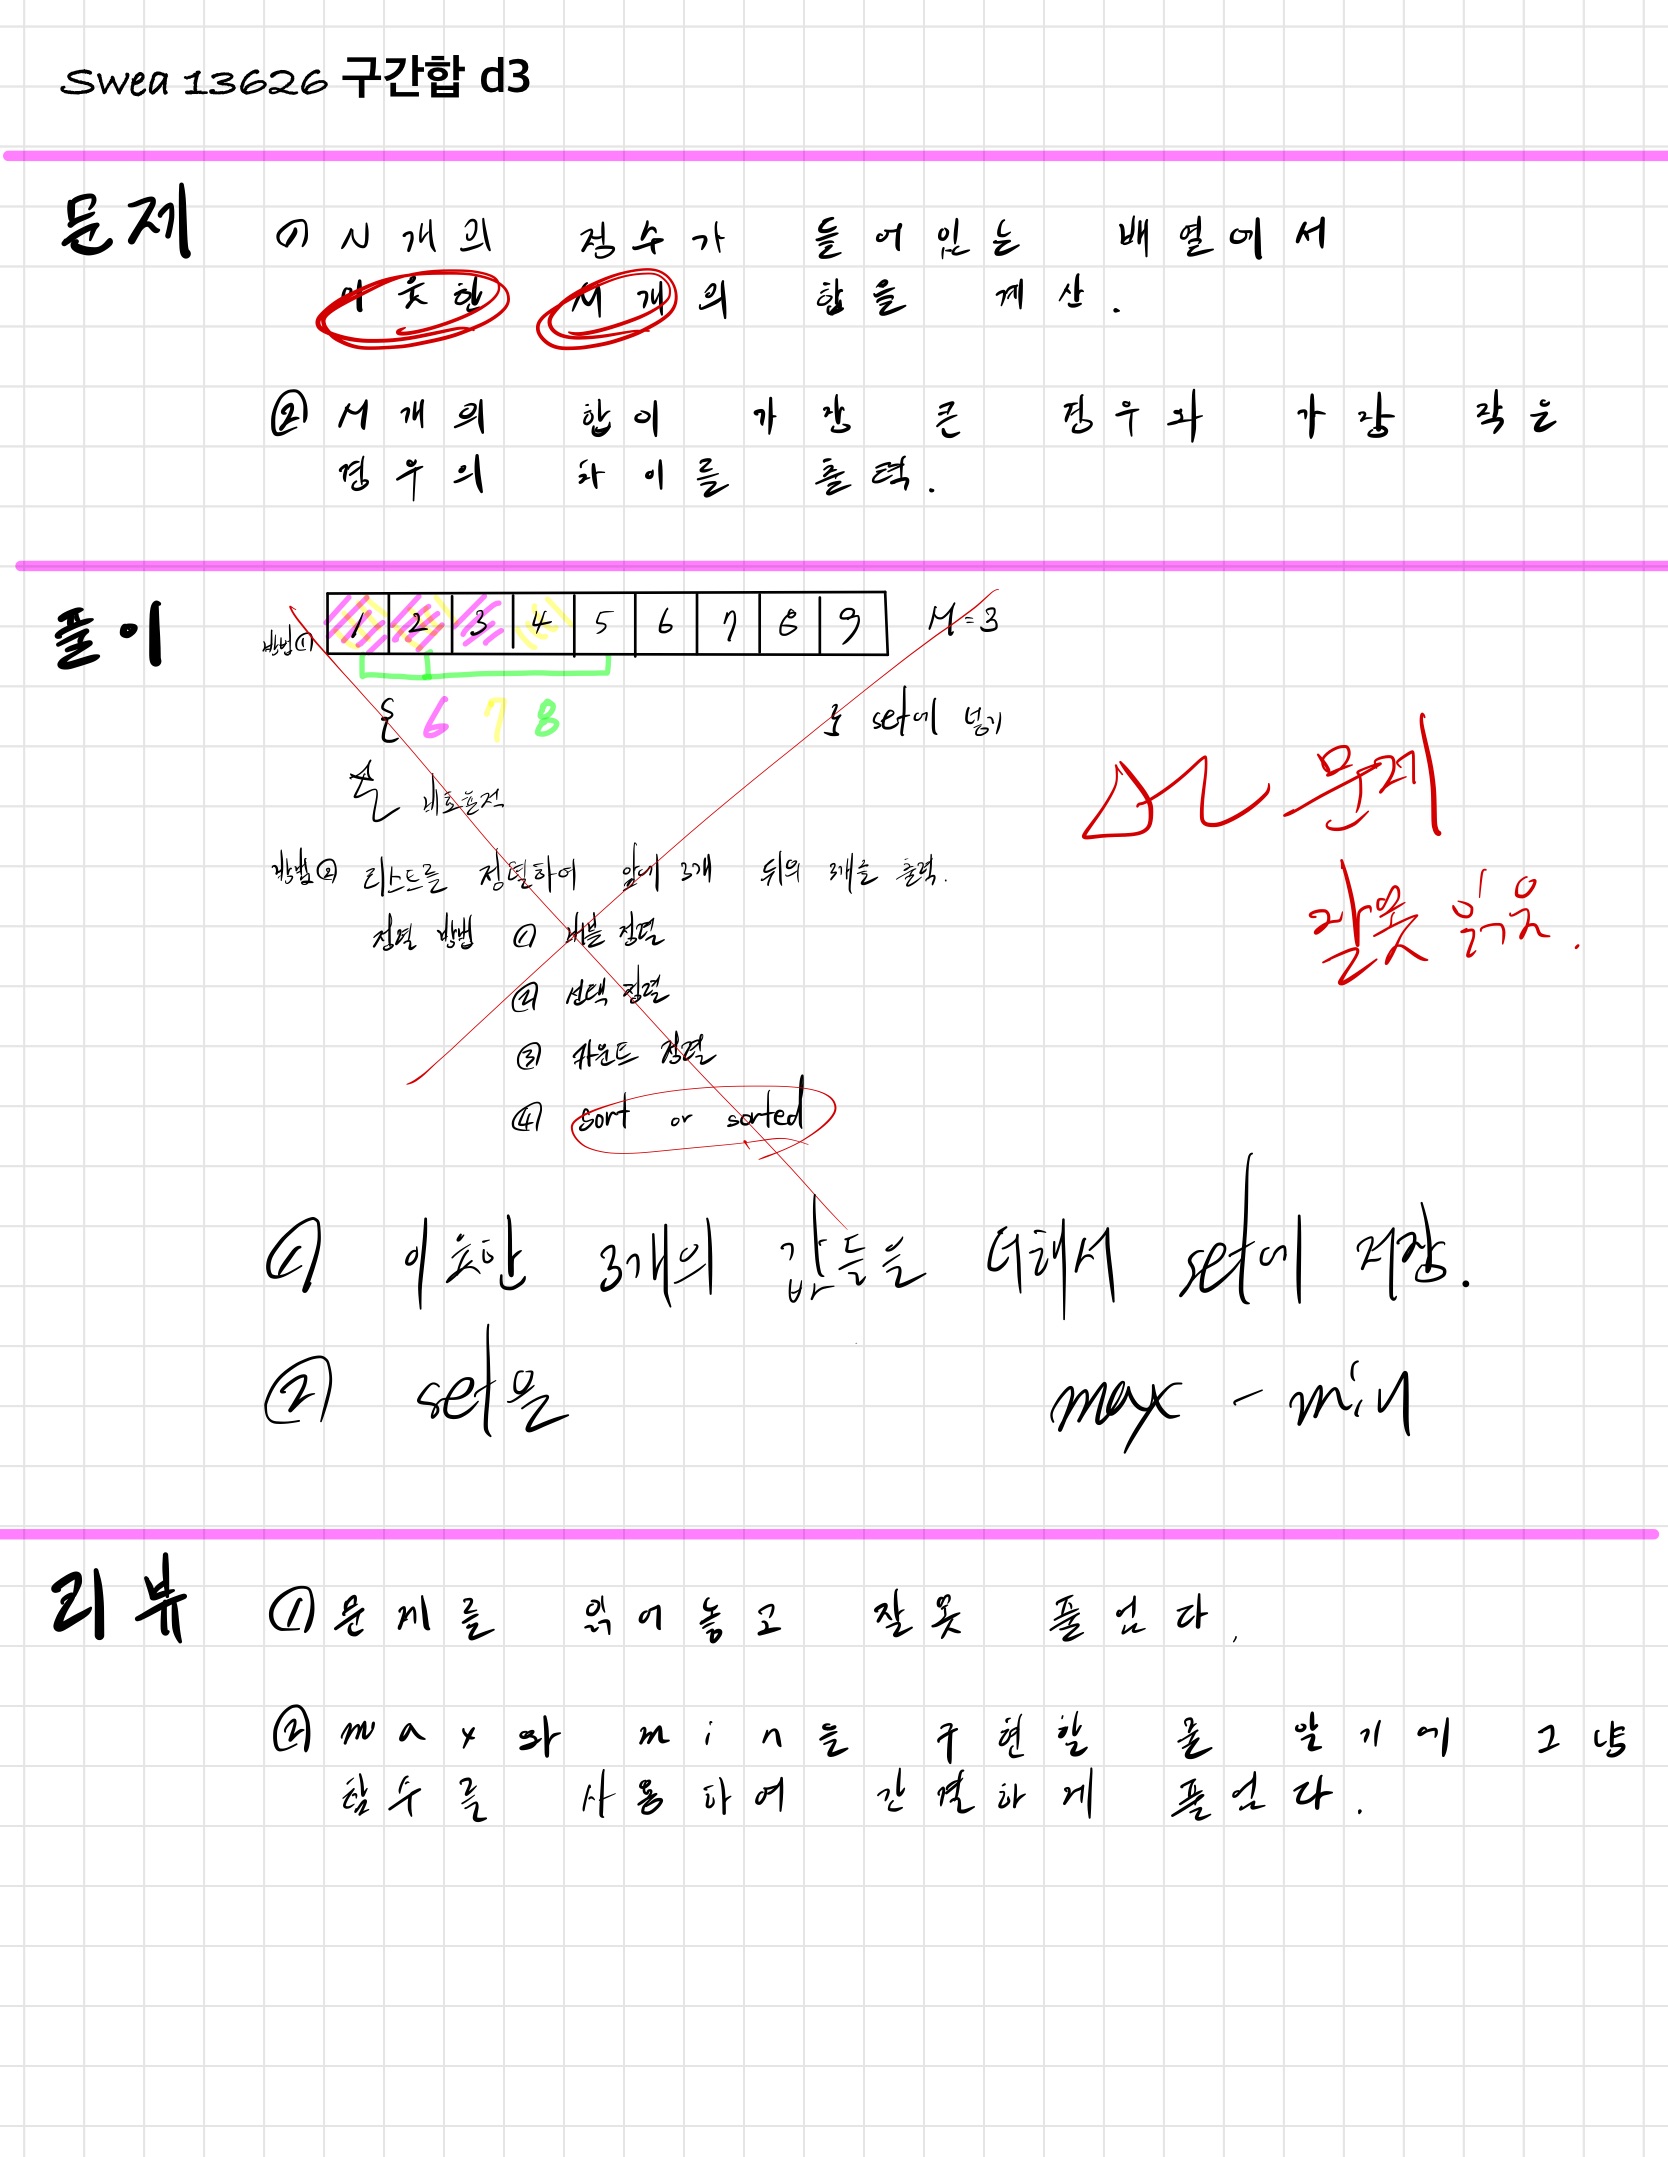 Swea 13626 구간합 d3
문제
① N개의 정수가 들어있는 배열에서
이웃한 M개의 합을 계산.
② M개의 합이 가장 큰 경우와 가장 작은
경우의 차이를 출력.
풀이
방법① 1 2 3 4 5 6 7 8 9 M=3
{ 6 7 8 } set에 넣기
비효율적
방법② 리스트를 정렬하여 앞에 3개 뒤의 3개를 출력.
정렬 방법 ① 버블 정렬
② 선택 정렬
③ 카운트 정렬
④ sort or sorted
문제
잘못 읽음.
① 이웃한 3개의 값들을 더해서 set에 저장.
② set을 max - min
리뷰
① 문제를 읽어놓고 잘못 풀었다.
② max와 min을 구현할 줄 알기에 그냥
함수를 사용하여 간결하게 풀었다.